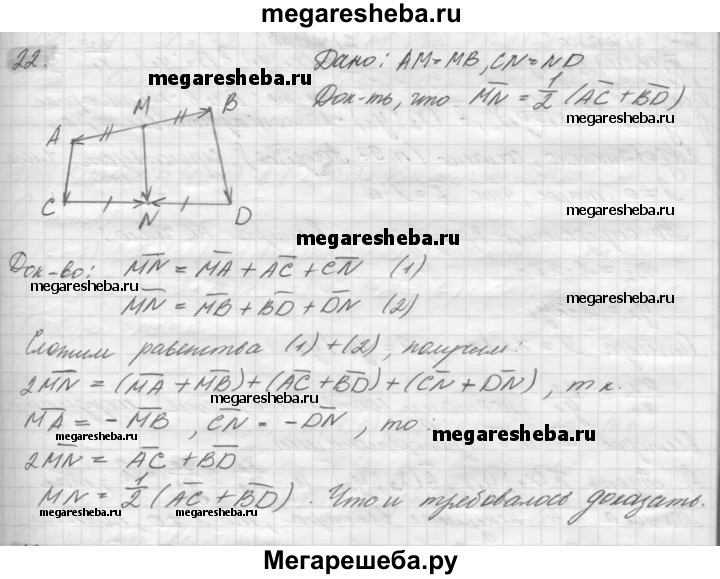 megaresheba.ru
22.
Дано: AM=MB, CN=ND
megaresheba.ru
Док-ть, что M̅N̅ = 1/2 (A̅C̅ + B̅D̅)
megaresheba.ru
M
B
A
C
N
D
megaresheba.ru
megaresheba.ru
Док-во: M̅N̅ = M̅A̅ + A̅C̅ + C̅N̅ (1)
megaresheba.ru
M̅N̅ = M̅B̅ + B̅D̅ + D̅N̅ (2)
megaresheba.ru
Сложим равенства (1)+(2), получим:
megaresheba.ru
2M̅N̅ = (M̅A̅ + M̅B̅) + (A̅C̅ + B̅D̅) + (C̅N̅ + D̅N̅), т.к.
M̅A̅ = - M̅B̅, C̅N̅ = - D̅N̅, то:
megaresheba.ru
megaresheba.ru
2M̅N̅ = A̅C̅ + B̅D̅
MN = 1/2 (A̅C̅ + B̅D̅). Что и требовалось доказать.
megaresheba.ru
megaresheba.ru
Мегарешеба.ру